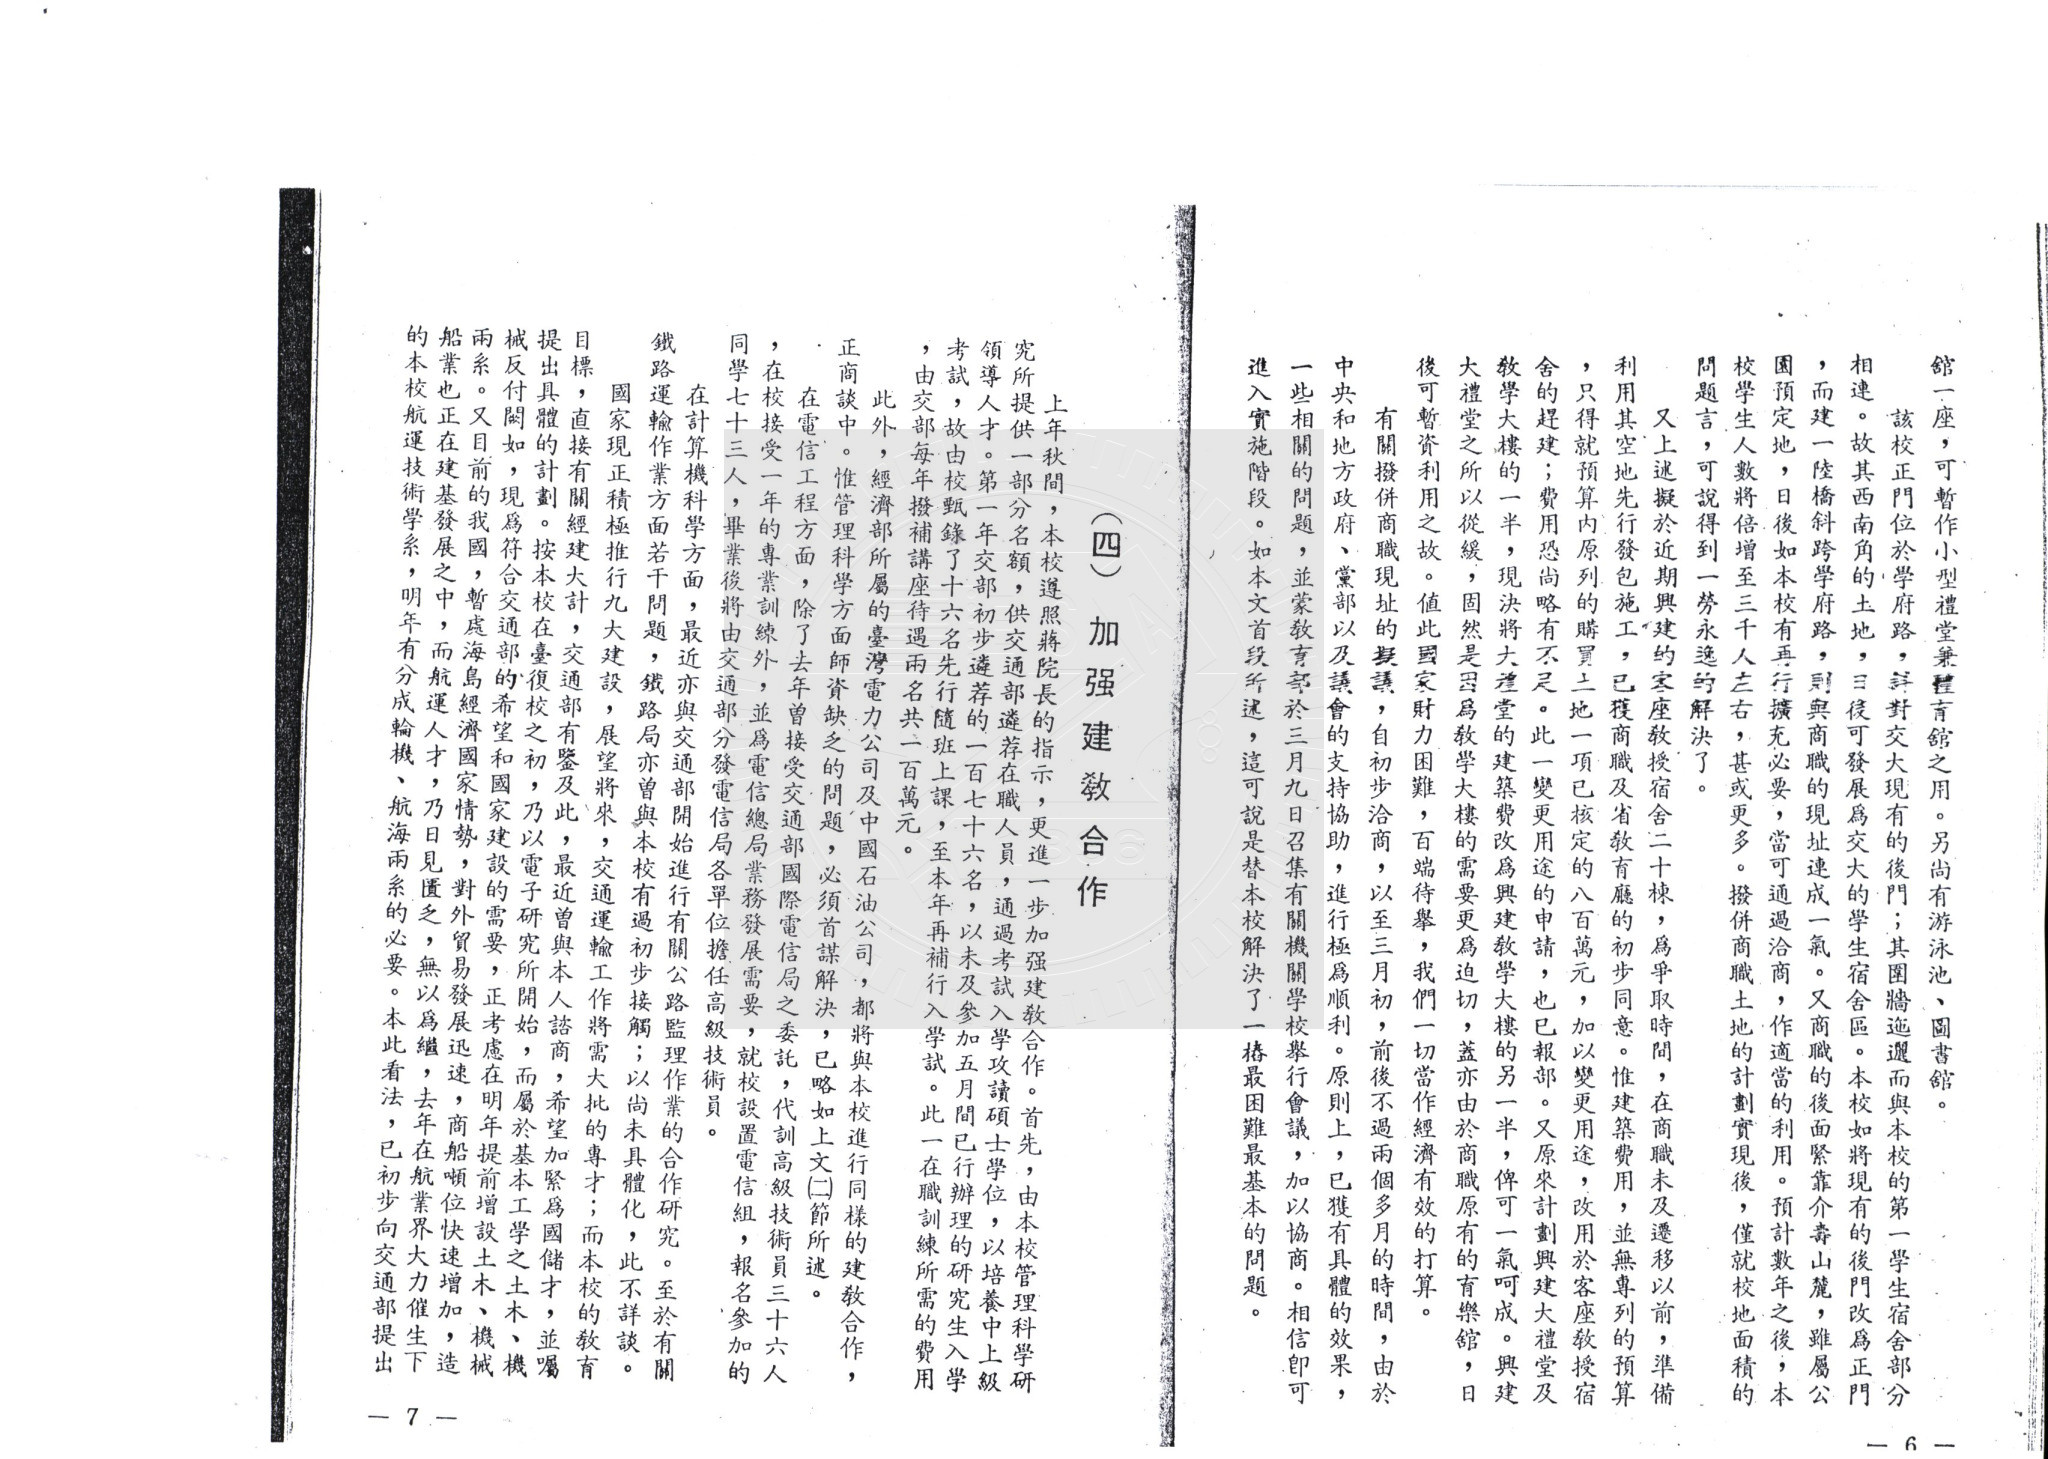 舘一座，可暫作小型禮堂兼體育舘之用。另尚有游泳池、圖書舘。
該校正門位於學府路，詳對交大現有的後門；其圍牆迤邐而與本校的第一學生宿舍部分
相連。故其西南角的土地，日後可發展爲交大的學生宿舍區。本校如將現有的後門改爲正門
，而建一陸橋斜跨學府路，則與商職的現址連成一氣。又商職的後面緊靠介壽山麓，雖屬公
園預定地，日後如本校有再行擴充必要，當可通過洽商，作適當的利用。預計數年之後，本
校學生人數將倍增至三千人左右，甚或更多。撥併商職土地的計劃實現後，僅就校地面積的
問題言，可說得到一勞永逸的解決了。
又上述擬於近期興建的客座敎授宿舍二十棟，爲爭取時間，在商職未及遷移以前，準備
利用其空地先行發包施工，已獲商職及省敎育廳的初步同意。惟建築費用，並無專列的預算
，只得就預算內原列的購買土地一項已核定的八百萬元，加以變更用途，改用於客座敎授宿
舍的趕建；費用恐尚略有不足。此一變更用途的申請，也已報部。又原來計劃興建大禮堂及
敎學大樓的一半，現決將大禮堂的建築費改爲興建敎學大樓的另一半，俾可一氣呵成。興建
大禮堂之所以從緩，固然是因爲敎學大樓的需要更爲迫切，蓋亦由於商職原有的育樂舘，日
後可暫資利用之故。值此國家財力困難，百端待舉，我們一切當作經濟有效的打算。
有關撥併商職現址的擬議，自初步洽商，以至三月初，前後不過兩個多月的時間，由於
中央和地方政府、黨部以及議會的支持協助，進行極爲順利。原則上，已獲有具體的效果，
一些相關的問題，並蒙敎育部於三月九日召集有關機關學校舉行會議，加以協商。相信卽可
進入實施階段。如本文首段所述，這可說是替本校解決了一樁最困難最基本的問題。
— 6 —
㈣ 加强建敎合作
上年秋間，本校遵照蔣院長的指示，更進一步加强建敎合作。首先，由本校管理科學研
究所提供一部分名額，供交通部遴荐在職人員，通過考試入學攻讀碩士學位，以培養中上級
領導人才。第一年交部初步遴荐的一百七十六名，以未及參加五月間已行辦理的研究生入學
考試，故由校甄錄了十六名先行隨班上課，至本年再補行入學試。此一在職訓練所需的費用
，由交部每年撥補講座待遇兩名共一百萬元。
此外，經濟部所屬的臺灣電力公司及中國石油公司，都將與本校進行同樣的建敎合作，
正商談中。惟管理科學方面師資缺乏的問題，必須首謀解決，已略如上文㈡節所述。
在電信工程方面，除了去年曾接受交通部國際電信局之委託，代訓高級技術員三十六人
，在校接受一年的專業訓練外，並爲電信總局業務發展需要，就校設置電信組，報名參加的
同學七十三人，畢業後將由交通部分發電信局各單位擔任高級技術員。
在計算機科學方面，最近亦與交通部開始進行有關公路監理作業的合作研究。至於有關
鐵路運輸作業方面若干問題，鐵路局亦曾與本校有過初步接觸；以尚未具體化，此不詳談。
國家現正積極推行九大建設，展望將來，交通運輸工作將需大批的專才；而本校的敎育
目標，直接有關經建大計，交通部有鑒及此，最近曾與本人諮商，希望加緊爲國儲才，並囑
提出具體的計劃。按本校在臺復校之初，乃以電子研究所開始，而屬於基本工學之土木、機
械反付闕如，現爲符合交通部的希望和國家建設的需要，正考慮在明年提前增設土木、機械
兩系。又目前的我國，暫處海島經濟國家情勢，對外貿易發展迅速，商船噸位快速增加，造
船業也正在建基發展之中，而航運人才，乃日見匱乏，無以爲繼，去年在航業界大力催生下
的本校航運技術學系，明年有分成輪機、航海兩系的必要。本此看法，已初步向交通部提出
— 7 —